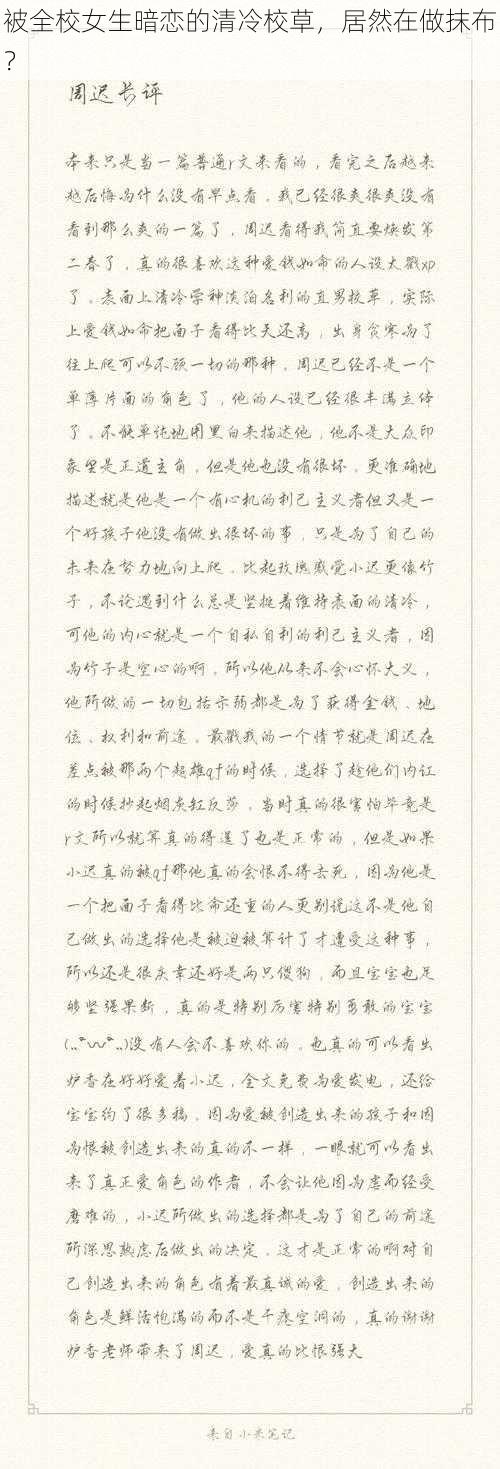 被全校女生暗恋的清冷校草，居然在做抹布
？
周迟长评
本来只是当一篇普通r文来看的，看完之后越来
越后悔为什么没有早点看，我已经很爽很爽没有
看到那么爽的一篇了，周迟看得我简直要焕发第
二春了，真的很喜欢这种爱钱如命的人设大戳xp
了。表面上清冷学神淡泊名利的直男校草，实际
上爱钱如命把面子看得比天还高，出身贫寒为了
往上爬可以不顾一切的那种，周迟已经不是一个
单薄片面的角色了，他的人设已经很丰满立体
了。不能单纯地用黑白来描述他，他不是大众印
象里是正道主角，但是他也没有很坏，更准确地
描述就是他是一个有心机的利己主义者但又是一
个好孩子他没有做出很坏的事，只是为了自己的
未来在努力地向上爬，比起玫瑰感觉小迟更像竹
子，不论遇到什么总是坚挺着维持表面的清冷，
可他的内心就是一个自私自利的利己主义者，因
为竹子是空心的啊，所以他从来不会心怀大义，
他所做的一切包括示弱都是为了获得金钱、地
位、权利和前途。最戳我的一个情节就是周迟在
差点被那两个超雄qf的时候，选择了趁他们内讧
的时候抄起烟灰缸反莎，当时真的很害怕毕竟是
r文所以就算真的得逞了也是正常的，但是如果
小迟真的被qf那他真的会恨不得去死，因为他是
一个把面子看得比命还重的人更别说这不是他自
己做出的选择他是被迫被算计了才遭受这种事，
所以还是很庆幸还好是两只傻狗，而且宝宝也足
够坚强果断，真的是特别厉害特别勇敢的宝宝
(„ᵕᴗᵕ„)没有人会不喜欢你的。也真的可以看出
炉香在好好爱着小迟，全文免费为爱发电，还给
宝宝约了很多稿，因为爱被创造出来的孩子和因
为恨被创造出来的真的不一样，一眼就可以看出
来了真正爱角色的作者，不会让他因为虐而经受
磨难的，小迟所做出的选择都是为了自己的前途
所深思熟虑后做出的决定，这才是正常的啊对自
己创造出来的角色有着最真诚的爱，创造出来的
角色是鲜活饱满的而不是干瘪空洞的，真的谢谢
炉香老师带来了周迟，爱真的比恨强大
来自小米笔记